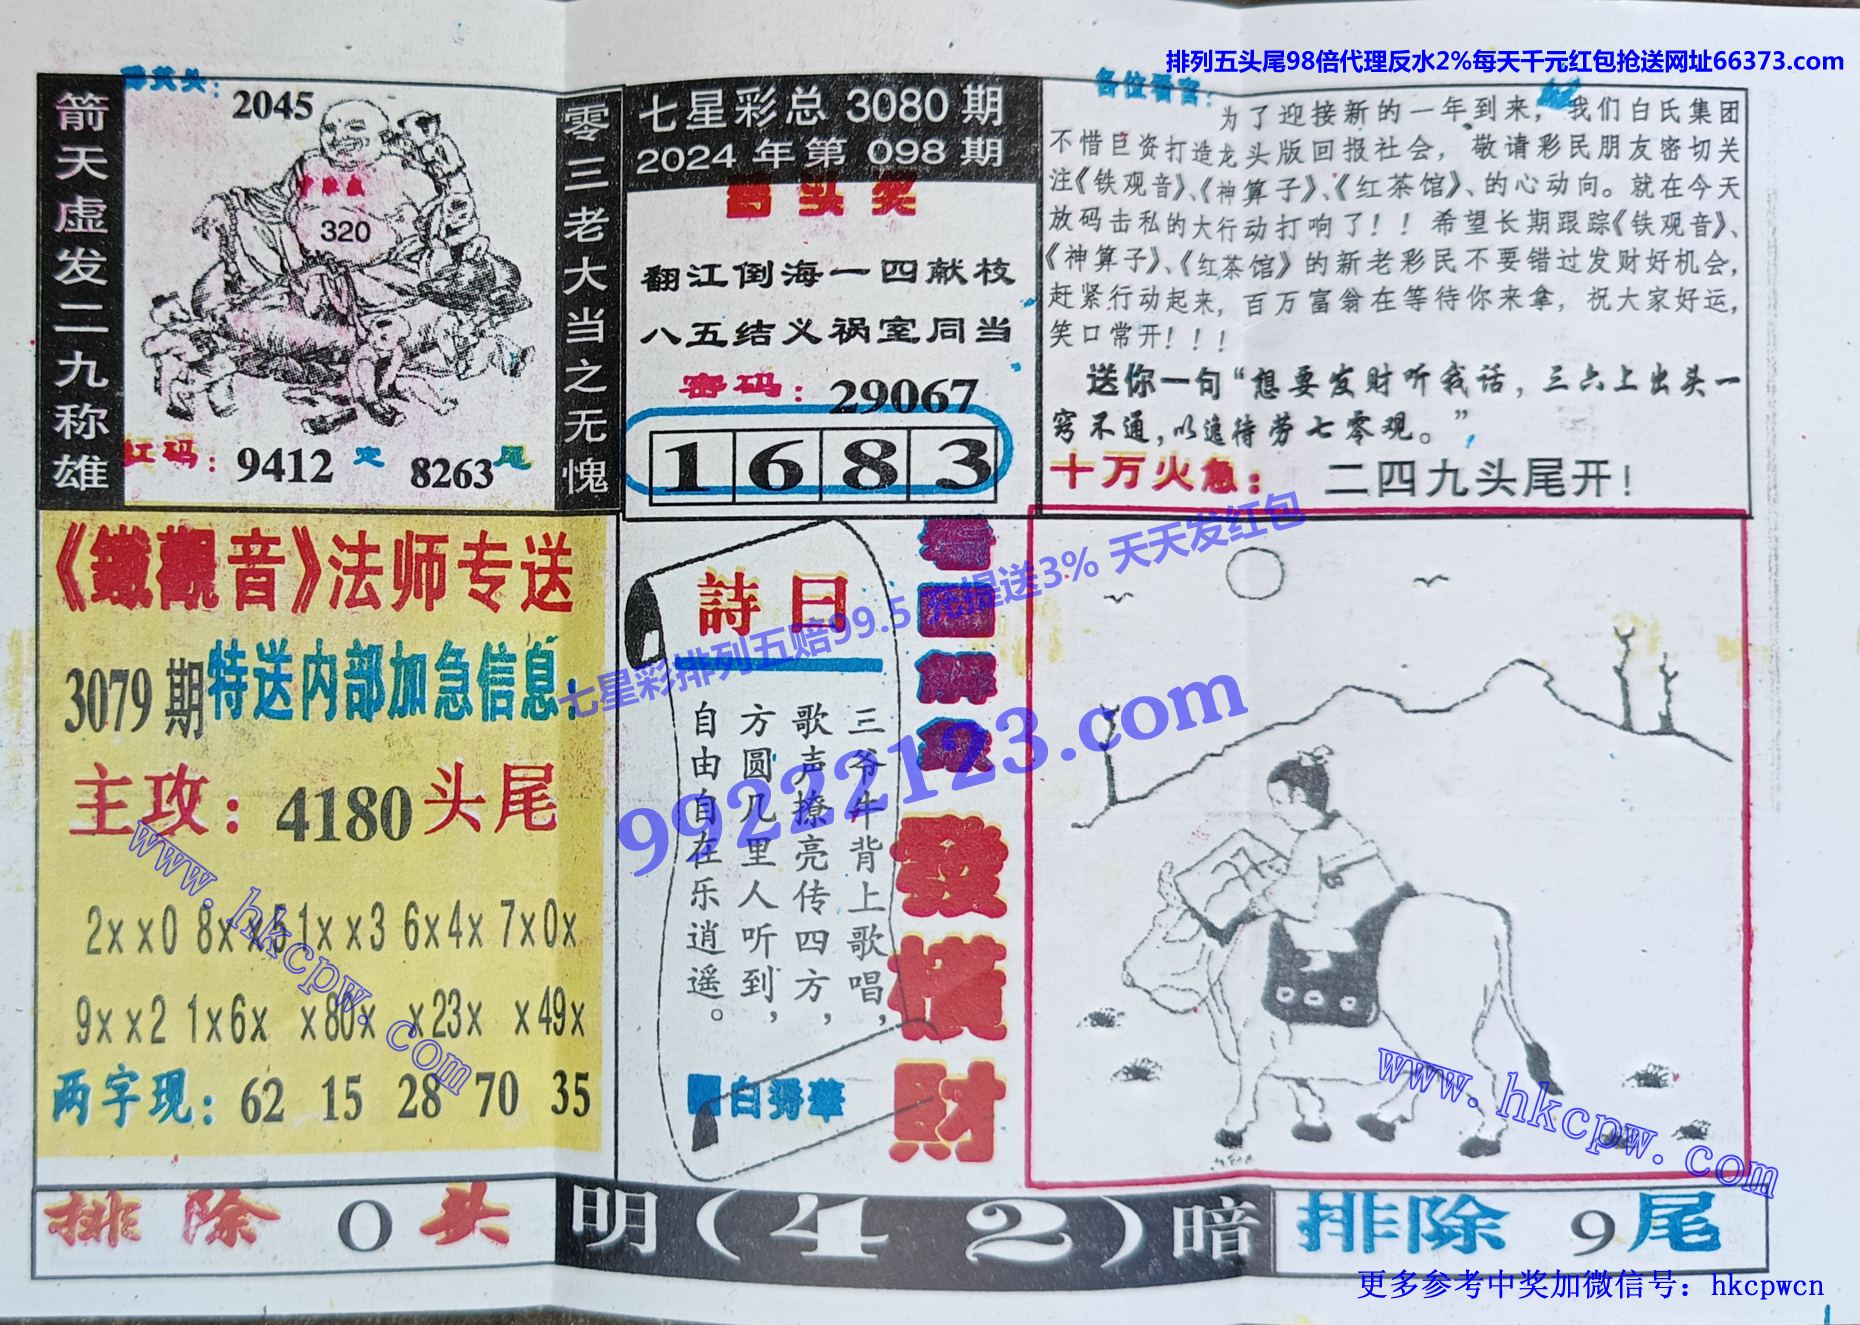 排列五头尾98倍代理反水2%每天千元红包抢送网址66373.com
箭天虚发二九称雄
2045
320
红码：9412 定 8263尾
零三老大当之无愧
七星彩总 3080 期
2024 年第 098 期
翻江倒海一四献枝
八五结义祸室同当
密码：29067
1 6 8 3
各位看官：
为了迎接新的一年到来，我们白氏集团
不惜巨资打造龙头版回报社会，敬请彩民朋友密切关
注《铁观音》、《神算子》、《红茶馆》、的心动向。就在今天
放码击私的大行动打响了！！希望长期跟踪《铁观音》、
《神算子》、《红茶馆》的新老彩民不要错过发财好机会，
赶紧行动起来，百万富翁在等待你来拿，祝大家好运，
笑口常开！！！
送你一句“想要发财听我话，三六上出头一
窍不通，以逸待劳七零观。”
十万火急：二四九头尾开！
《鐵觀音》法师专送
3079期特送内部加急信息：
主攻：4180头尾
2xx0 8xx5 1xx3 6x4x 7x0x
9xx2 1x6x x80x x23x x49x
两字现：62 15 28 70 35
詩曰
三爷牛背上歌唱，
歌声撩亮传四方，
方圆几里人听到，
自由自在乐逍遥。
發橫財
七星彩排列五赔99.5 充提送3% 天天发红包
99222123.com
www.hkcpw.com
www.hkcpw.com
排除 0 头
明（4 2）暗
排除 9 尾
更多参考中奖加微信号：hkcpwcn